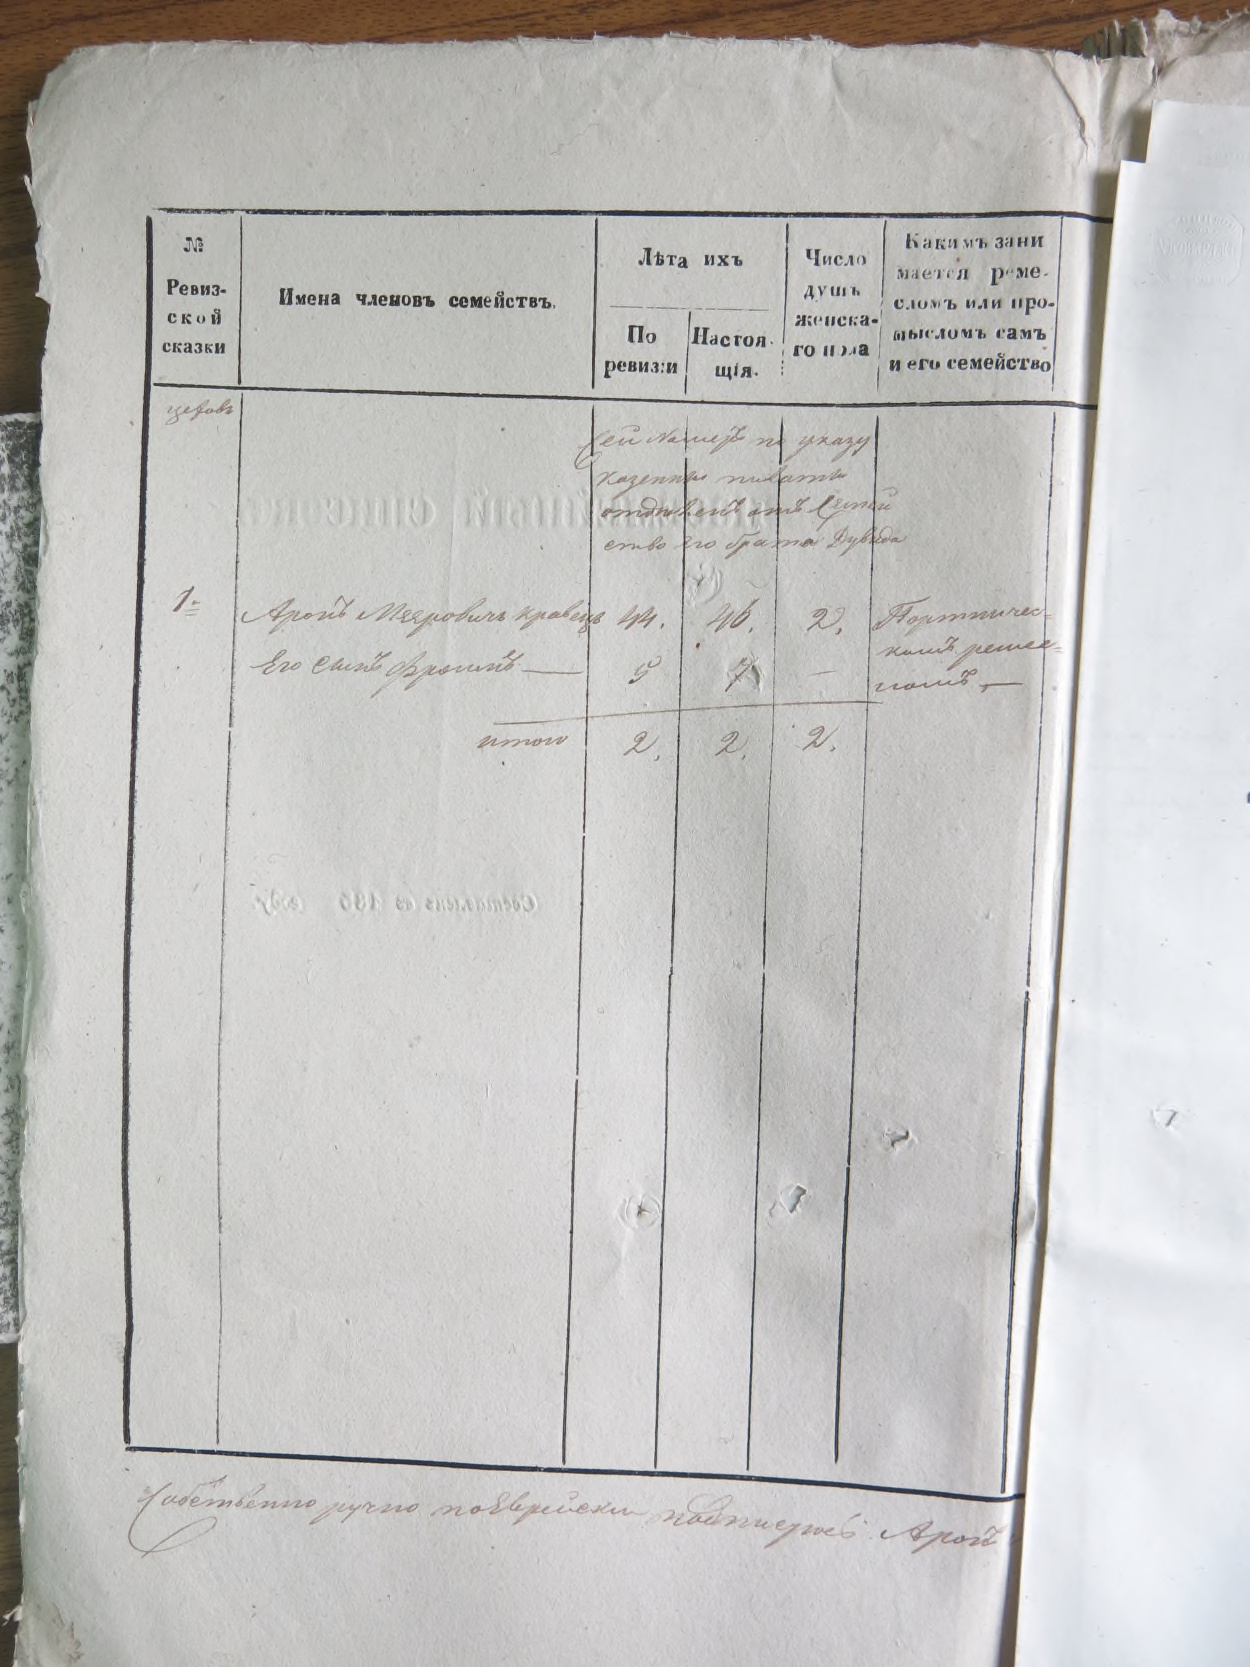 №
Ревиз-
ской
сказки
Имена членовъ семействъ.
Лѣта ихъ
По
ревизіи
Настоя-
щія.
Число
душъ
женска-
го пола
Какимъ зани
мается реме-
сломъ или про-
мысломъ самъ
и его семейство
Сей Номеръ по указу
казенны палаты
отдѣленъ отъ Семей
ство его брата Дувида
СЕМЕЙНЫЙ СПИСОКЪ
1
Аронъ Мееровичъ Кравецъ 44. 46. 2. Портничес-
комъ ремес-
Его Сынъ Фроимъ — 5 7 —
ломъ —
итого 2. 2. 2.
Составленъ въ 183 году
Собственно ручно поеврейски подписуюсь Аронъ